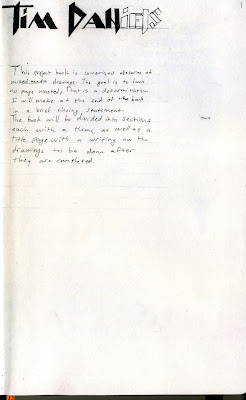 TIM DANIELS
1
This project book is comprised of
mixed media drawings. The goal is to have
no page wasted, That is a determination
I will make at the end of the book
in a brief closing statement.
The book will be divided into sections
each with a theme as well as a
title page with a writing on the
drawings to be done after
they are completed.